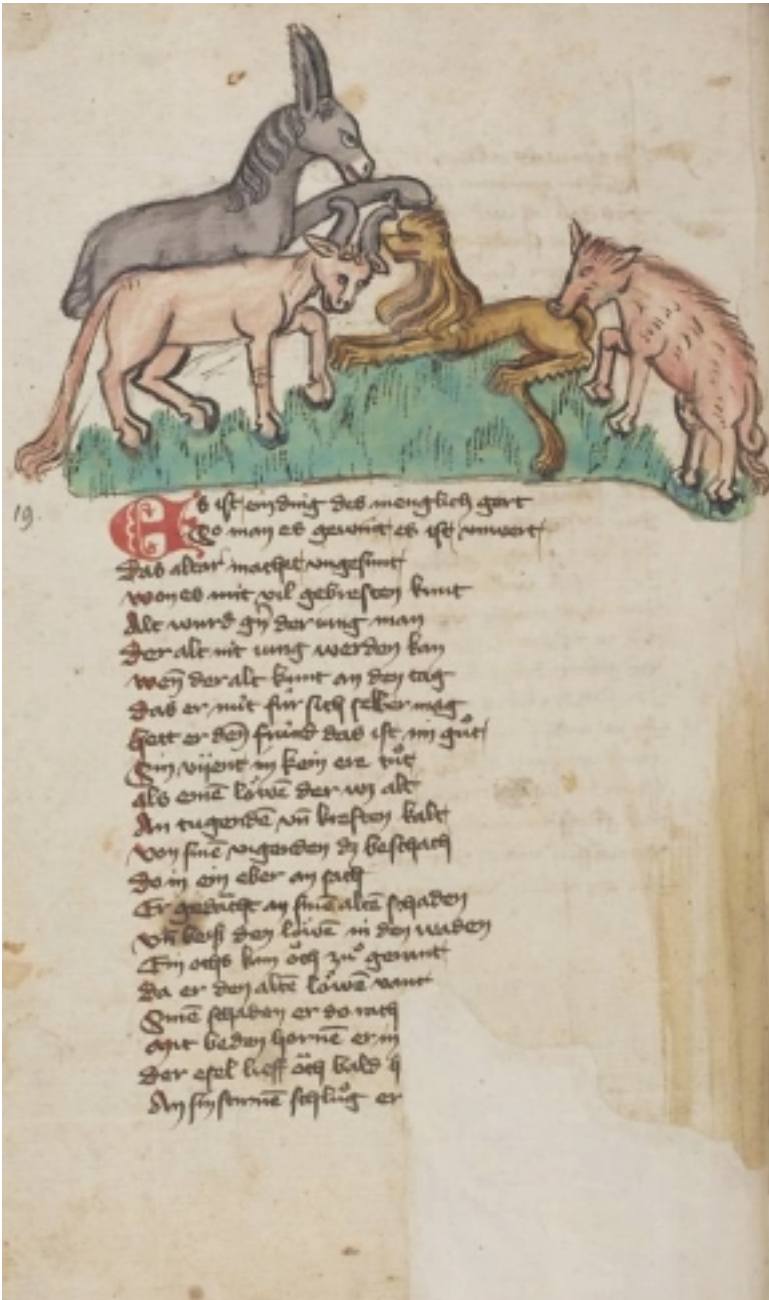 19.
Es ist ein ding des menglich gert
So man es gewint es ist unwert
Das alter machet ungesunt
won es mit vil gebresten kunt
Alt wurd gn̄ der iung man
Der alt nit iung werden kan
wen̄ der alt kunt an den tag
Das er nüt für sich selber mag
Hett er den̄ fründ das ist im gůt
Sin vyent im kein ere tůt
als einē löwē der wz alt
An tugendē vn̄ kreften kalt
von sinē vigenden dz beschach
do in ein eber an sach
Er gedacht an sinē altē schaden
vn̄ beiss den löwē in den waden
Ein ochs kam öch zů gerant
da er den altē löwē vant
Sinē schaden er do rach
Mit beden hornē er in
der esel lieff öch bald
An sin stirnē schlůg er